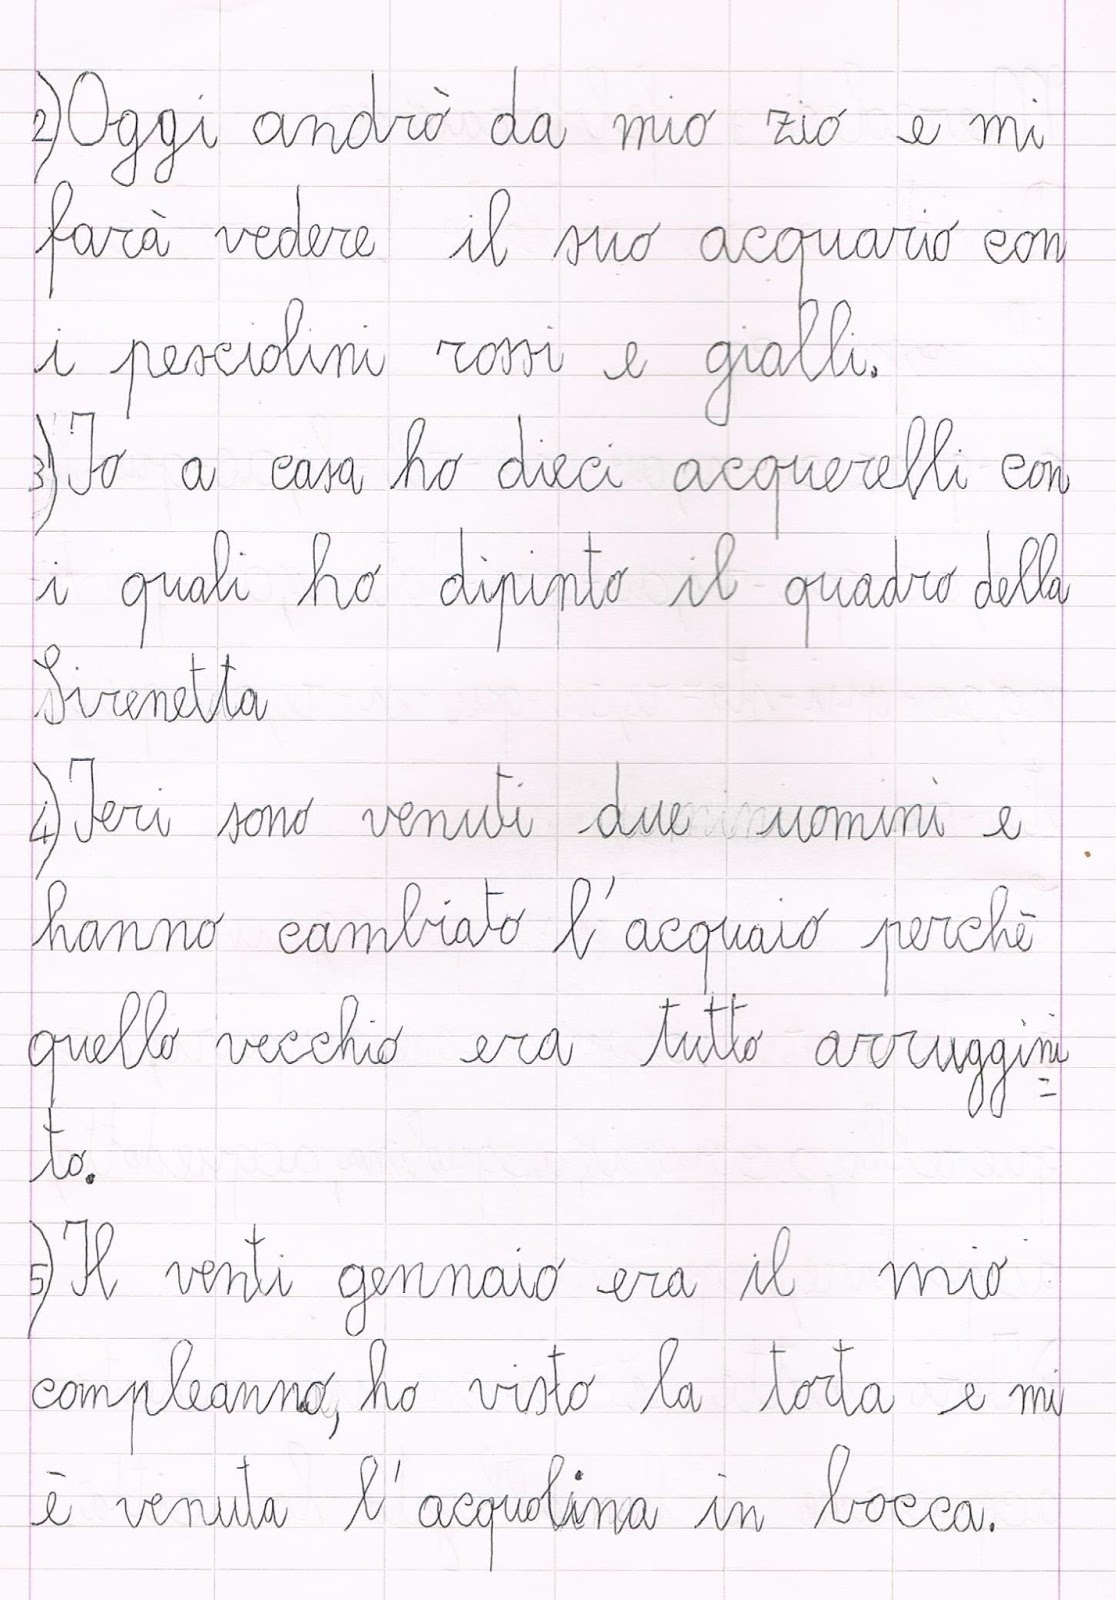 2) Oggi andrò da mio zio e mi
farà vedere il suo acquario con
i pesciolini rossi e gialli.
3) Io a casa ho dieci acquerelli con
i quali ho dipinto il quadro della
Sirenetta
4) Ieri sono venuti due uomini e
hanno cambiato l'acquaio perchè
quello vecchio era tutto arruggini=
to.
5) Il venti gennaio era il mio
compleanno, ho visto la torta e mi
è venuta l'acquolina in bocca.